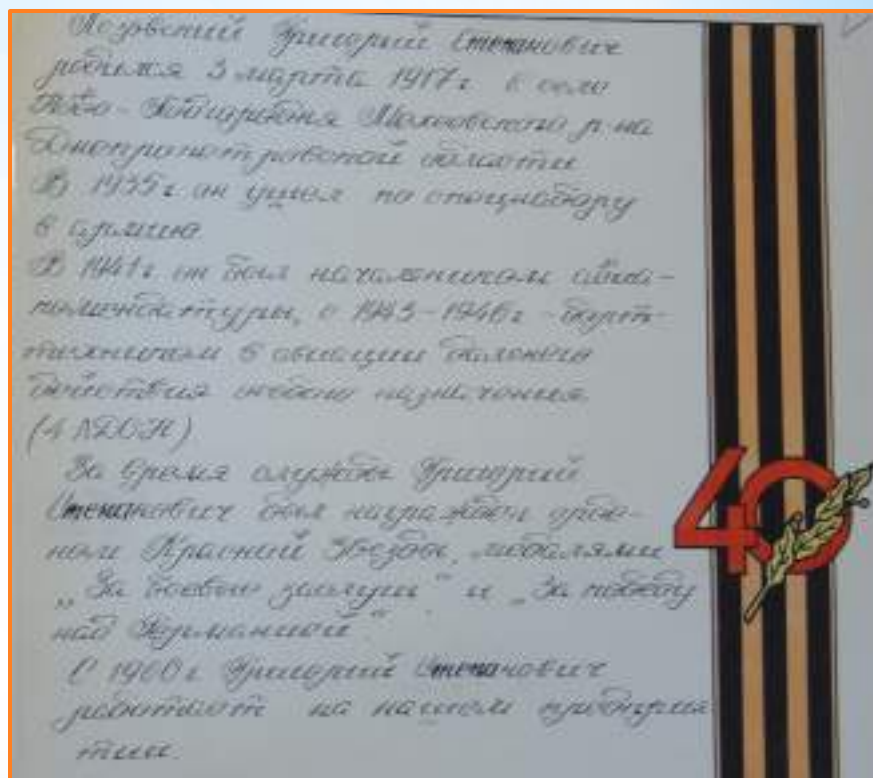 Григорий Степанович
родился 3 марта 1917г. в селе
р-на
Днепропетровской области
В 1935г. он ушел по спецнабору
в армию.
В 1941г. он был начальником авиа-
комендатуры, с 1943-1946г. - борт-
техником в авиации дальнего
действия особого назначения.
За время службы Григорий
Степанович был награжден орде-
ном Красной Звезды, медалями
„За боевые заслуги“ и „За победу
над Германией“.
С 1960г. Григорий Степанович
работает на нашем предприя-
тии.
40